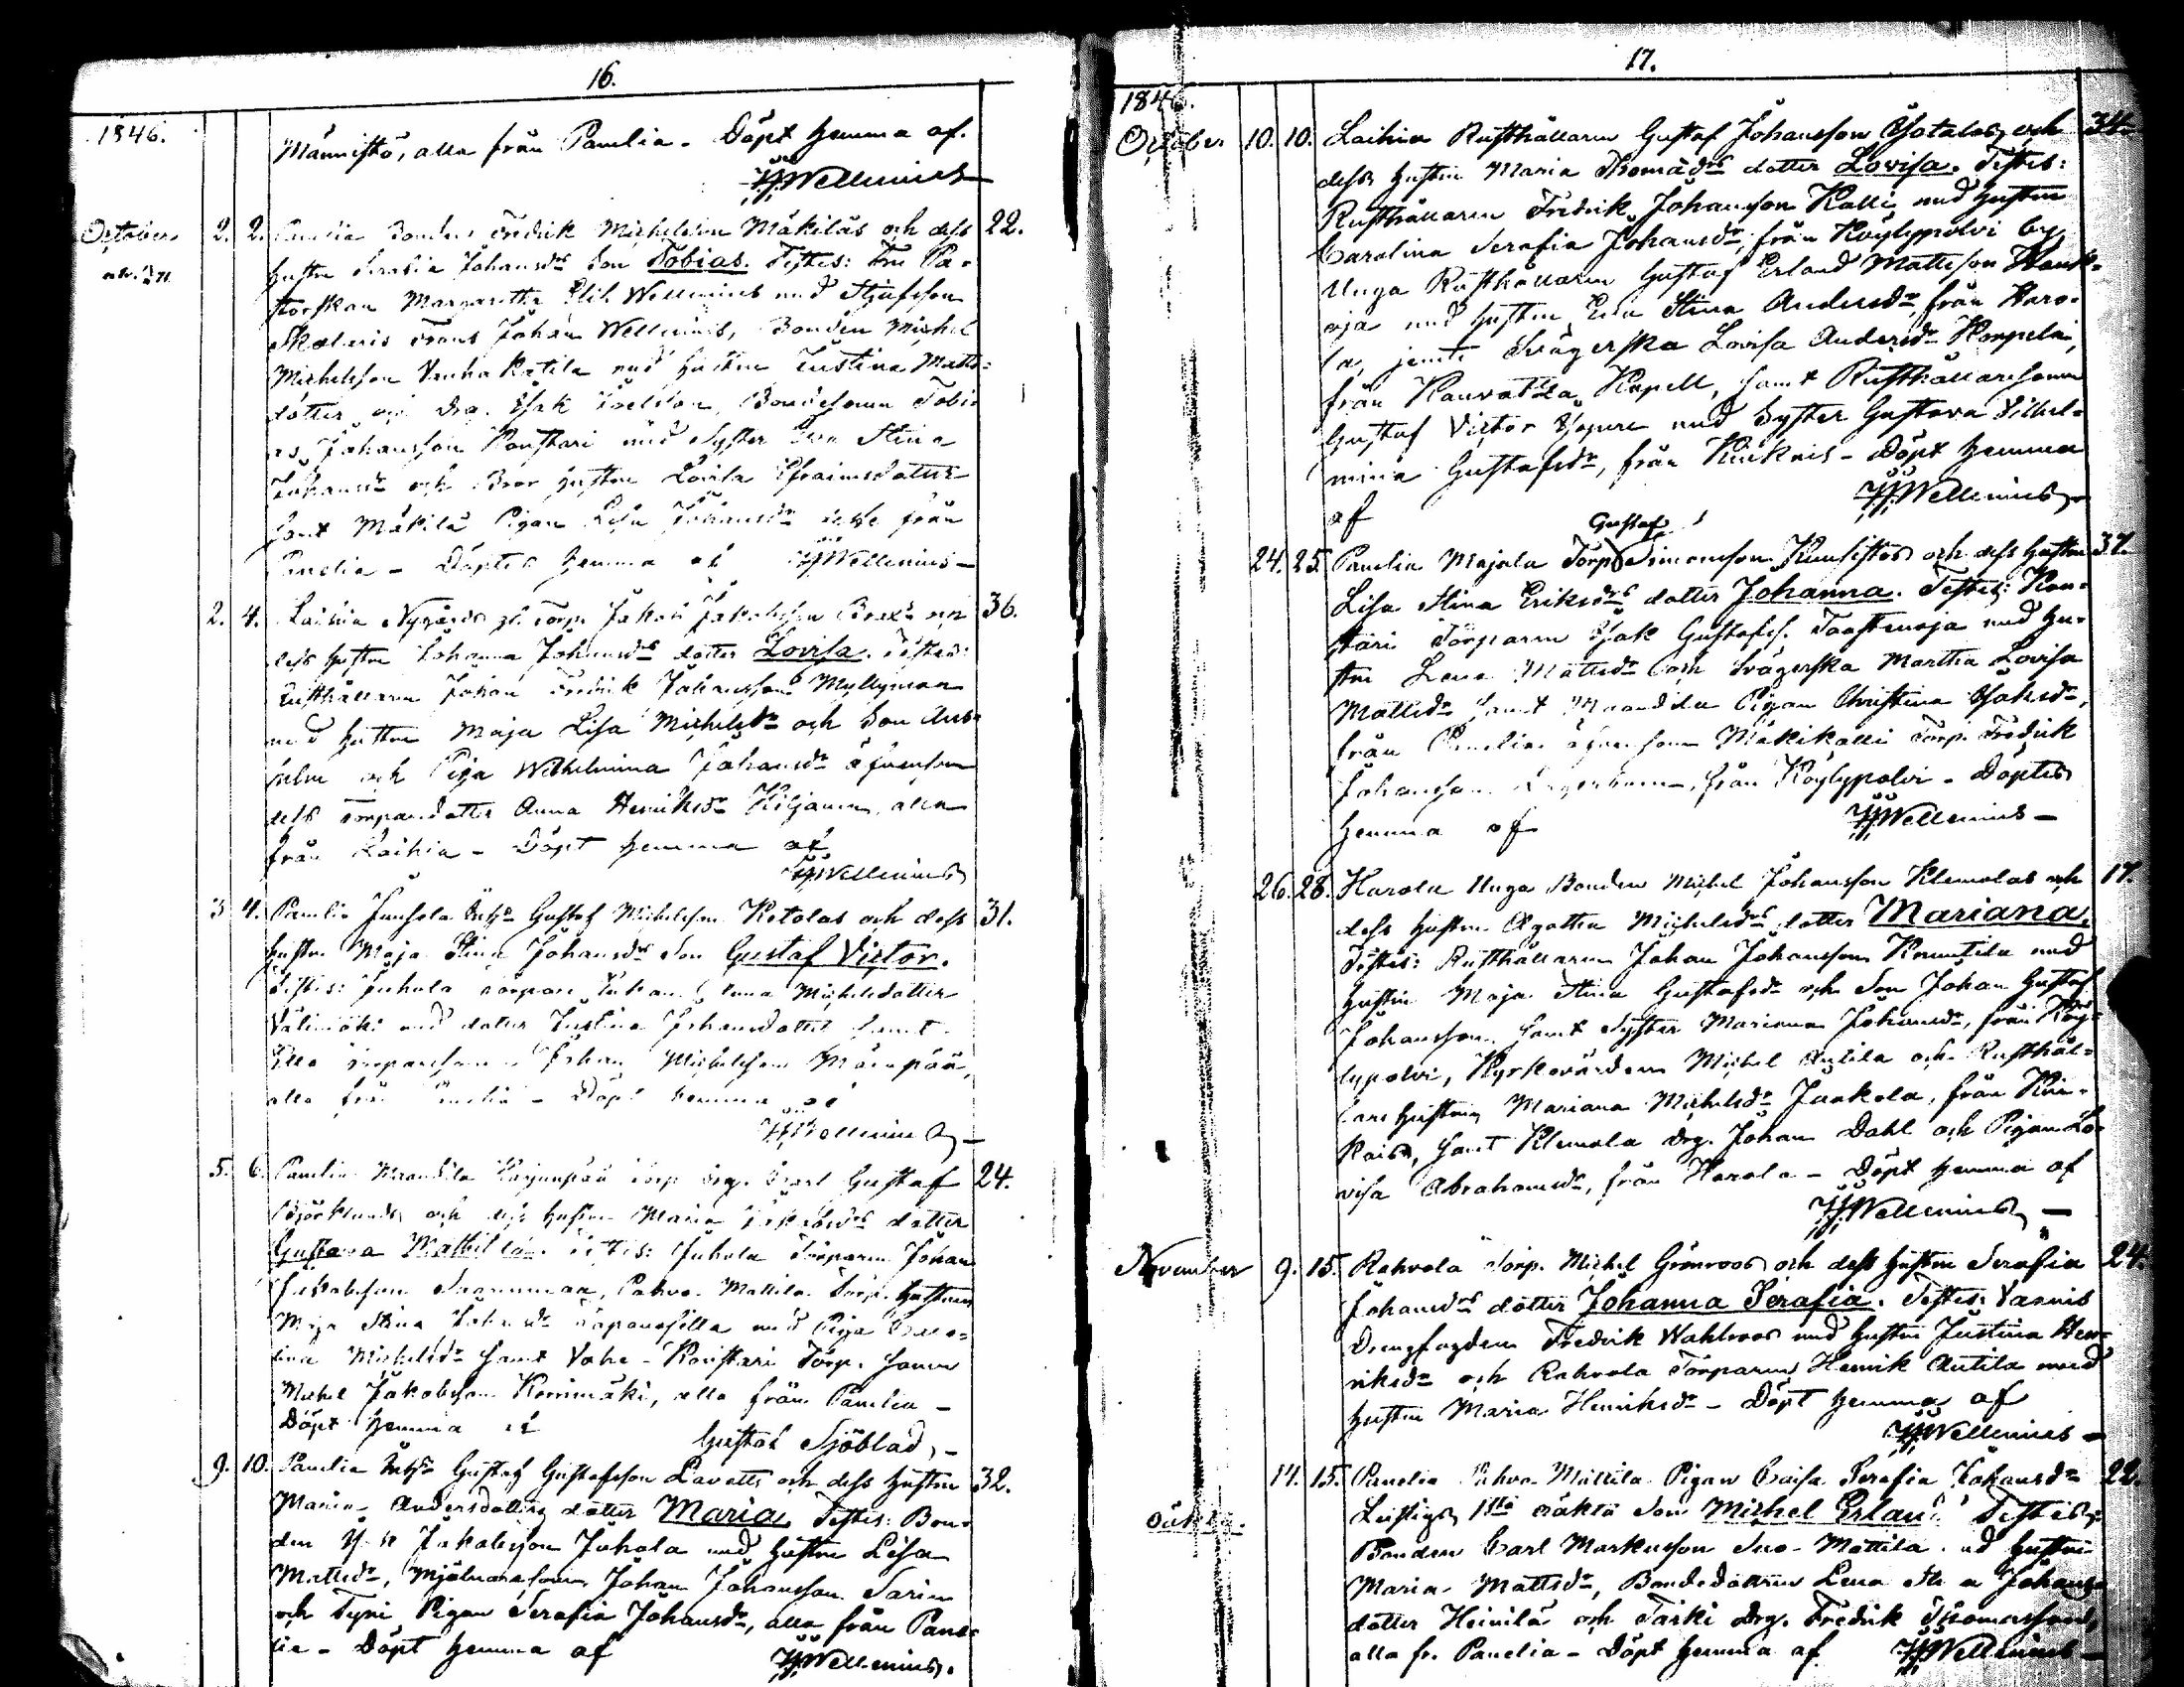 16.
1846.
Männistö, alla från Panelia - Döpt hemma af
Wellenius
October 2. 2. Panelia Bonden Fredrik Michelsson Mäkiläs och dess 22.
hustru Serafia Johansdrs son Tobias. Testes: Fru Pa-
storskan Margaretha Elis. Wellenius med Stjufsson
Frans Johan Wellenius, Bonden Michel
Michelsson Vanhakatila med hustru Justina Matts-
dotter och drg. Isak Bondesonen Tobi-
as Johansson Konstari med Syster Eva Stina
Johansdr och Bror hustru Lovisa Efraimsdotter
samt Mäkilä Pigan Lisa Johansdr alla från
Panelia - Döptes hemma af Wellenius -
2. 4. Laihia Nygårds Torp. Johan Jakobsson och 36.
dess hustru Johanna Johansdrs dotter Lovisa. Testes:
Rusthållaren Johan Fredrik Johansson Myllymaa
med hustru Maja Lisa Michelsdr och Son
och Piga Wilhelmina Johansdr äfvensom
dess Torparedotter Anna Henriksdr Kiljanen, alla
från Laihia - Döpt hemma af
Wellenius
3 4. Panelia Juhola Inhs Gustaf Michelsson Ketolas och dess 31.
hustru Maja Stina Johansdrs Son Gustaf Victor.
Testes: Juhola Michelsdotter
Välimäki med dotter Justina Johansdotter samt
Johan Michelsson Mäenpää,
alla från Panelia - Döpt hemma af
Wellenius -
5. 6. Panelia Maandila Torp drg. Carl Gustaf 24.
Björklunds och dess hustru Maria dotter
Gustava Mathilda. Testes: Juhola Torparen Johan
Jakobsson Pahva-Mattila Torp. hustrun
Maja Stina Johansdr med Piga Caro-
lina Michelsdr samt Vahe-Konstari Torp. sonen
Michel Jakobsson Korrimäki, alla från Panelia -
Döpt hemma af
Gustaf Sjöblad, -
9. 10. Panelia Inhs Gustaf Gustafsson Lavatts och dess hustru 32.
Maria Andersdotters dotter Maria. Testes: Bon-
den Isak Jakobsson Juhola med hustru Lisa
Mattsdr, Mjölnaresonen Johan Johansson Sarin
och Tyni Pigan Serafia Johansdr, alla från Pane-
lia - Döpt hemma af Wellenius.
17.
1846.
October 10. 10. Laihia Rusthållaren Gustaf Johansson Isotalos och 34.
dess hustru Maria Thomædrs dotter Lovisa. Testes:
Rusthållaren Fredrik Johansson Kalli med hustru
Carolina Serafia Johansdr, från Köylypolvi by,
Unga Rusthållaren Gustaf Erland Mattsson Hank-
oja med hustru Eva Stina Andersdr, från Haro-
la, jemte Svägerska Lovisa Andersdr Korpela,
från Kauvatsa Kapell, samt Rusthållaresonen
Gustaf Victor Yopere med Syster Gustava Vilhel-
mina Gustafsdr, från Kiukais - Döpt hemma
af Wellenius
24. 25. Panelia Majala Torp. Gustaf Simonsson Kuusistos och dess hustru 37.
Lisa Stina Eriksdrs dotter Johanna. Testes: Kon-
stari Torparen Isak Gustafss. Taastenoja med hu-
stru Lena Mattsdr och Svägerska Martha Lovisa
Mattsdr samt Maandila Pigan Christina Isaksdr,
från Panelia äfvensom Mäkikalli Torp. Fredrik
Johansson från Köylypolvi - Döptes
hemma af Wellenius -
26. 28. Harola Unga Bonden Michel Johansson Klemolas och 17.
dess hustru Agatha Michelsdrs dotter Mariana.
Testes: Rusthållaren Johan Johansson Knuutila med
hustru Maja Stina Gustafsdr och Son Johan Gustaf
Johansson samt Syster Mariana Johansdr, från Köy-
lypolvi, Kyrkovärden Michel Antila och Rusthål-
lare hustrun Mariana Michelsdr Junkola, från Kiu-
kais, samt Klemola drg. Johan Dahl och Pigan Lo-
visa Abrahamsdr, från Harola - Döpt hemma af
Wellenius -
November 9. 15. Rahvola Torp. Michel Grönroos och dess hustru Serafia 24.
Johansdrs dotter Johanna Serafia. Testes: Vannis
Drengfogden Fredrik Wahlroos med hustru Justina Hen-
riksdr och Rahvola Torparen Henrik Antila med
hustru Maria Henriksdr - Döpt hemma af
Wellenius -
14. 15. Panelia Pahva-Mattila Pigan Caisa Serafia Johansdr 22.
oäkta. Lustigs 1sta oäkta Son Michel Erland. Testes:
Bonden Carl Markusson Suo-Mattila med hustru
Maria Mattsdr, Bondedottren Lena Stina Johans-
dotter Heinilä och Taiki drg. Fredrik Thomasson,
alla fr. Panelia - Döpt hemma af Wellenius -